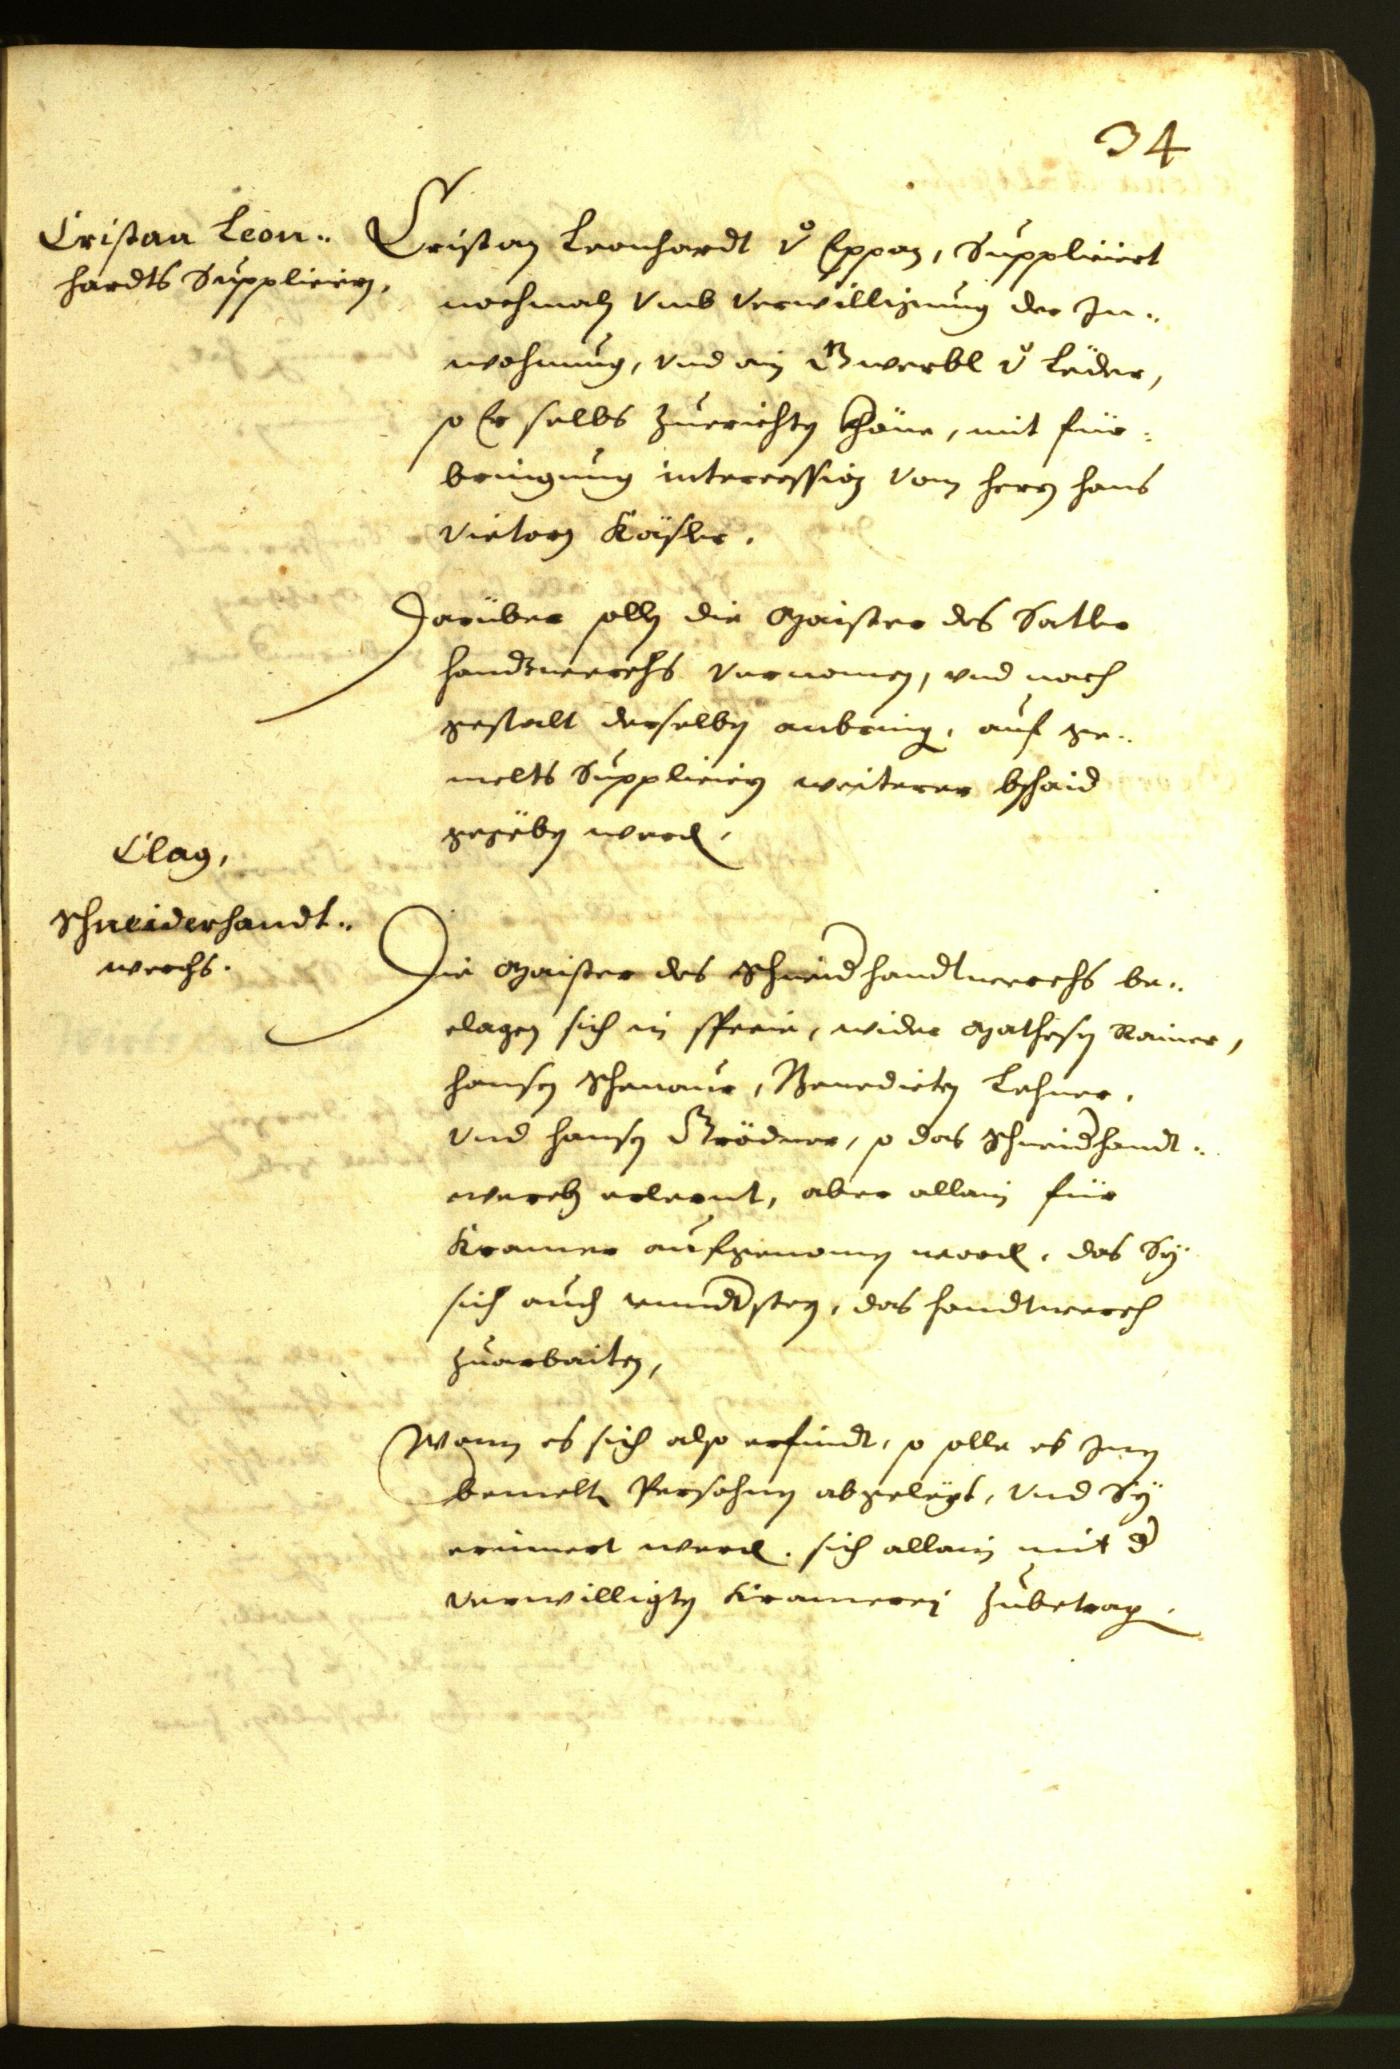 34
Cristan Leon-
hardts Supplicirn.
Cristan Leonhardt v Eppan, Suppliciert
nochmaln vmb verwilligung der In-
wohnung, vnd ain Gwerbl v Leder,
so Er selbs zuerichtn khöne, mit für-
bringung intercession vom hern hans
victorn Käsler.
Darüber solln die Maister des Satler
handwerchs vernomen, vnd nach
gestalt derselbn anbring, auf ge-
melts Supplicirn weiterer bschaid
gegebn werdn.
Clag,
Schneiderhandt-
werchs.
Die Maister des Schneid handtwerchs be-
clagen sich in specie, wider Mathesn Rainer,
hansen Schenaur, Benedictn Lehner,
vnd hansn Grödner, so das Schneidhandt-
werch erlernt, aber allain für
Kramer aufgenomen wordn, das Sy
sich auch vnndsten, das handtwerch
zuarbaiten,
Wann es sich also erfindt, so solle es Inen
bemeltn Persohnen abgelegt, vnd Sy
erinnert werdn. sich allain mit d
verwilligtn Kramerej zubetragn.